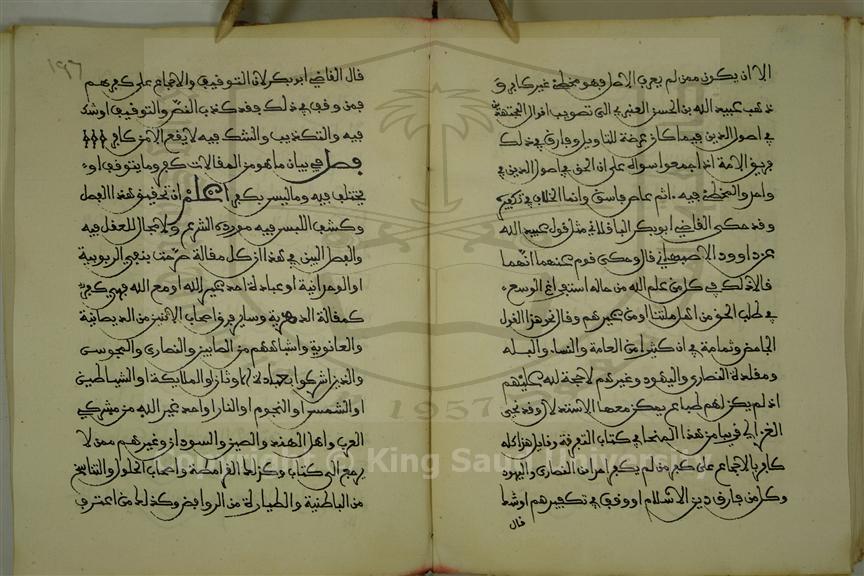 الا ان يكون ممن لم يعرف الاصل فهو مخطئ غير كافر و
ذهب عبيد الله بن الحسن العنبري الى تصويب اقوال المجتهدين
في اصول الدين فيما كان عرضة للتاويل وفارق في ذلك
فرق الامة اذ اجمعوا سواه على ان الحق في اصول الدين في
واحد والمخطئ فيه اثم عاص فاسق وانما الخلاف في تكفيره
وقد حكى القاضي ابو بكر الباقلاني مثل قول عبيد الله
عن داوود الاصبهاني قال وحكى قوم عنهما انهما
قالا ذلك في كل من علم الله من حاله استفراغ الوسع
في طلب الحق من اهل ملتنا او من غيرهم وقال نحو هذا القول
الجاحظ وثمامة في ان كثيرا من العامة والنساء والبله
ومقلدة النصارى واليهود وغيرهم لا حجة لله عليهم
اذ لم يكن لهم طباع يمكن معها الاستدلال وقد نحى
الغزالي قريبا من هذا المنحا في كتاب التفرقة وقايل هذا كله
كافر بالاجماع على كفر من لم يكفر احدا من النصارى واليهود
وكل من فارق دين الاسلام او وقف في تكفيرهم او شك
قال
١٩٦
قال القاضي ابو بكر لان التوقيف والاجماع على كفرهم
فمن وقف في ذلك فقد كذب النص والتوقيف او شك
فيه والتكذيب والشك فيه لا يقع الا من كافر
فصل في بيان ما هو من المقالات كفر وما يتوقف او
يختلف فيه وما ليس بكفر اعلم ان تحقيق هذا الفصل
وكشف اللبس فيه مورده الشرع ولا مجال للعقل فيه
والفصل البين في هذا ان كل مقالة صرحت بنفي الربوبية
او الوحدانية او عبادة احد غير الله او مع الله فهي كفر
كمقالة الدهرية وساير فرق اصحاب الاثنين من الديصانية
والمانوية واشباههم من الصابين والنصارى والمجوس
والذين اشركوا بعبادة الاوثان او الملايكة او الشياطين
او الشمس او النجوم او النار او احد غير الله من مشركي
العرب واهل الهند والصين والسودان وغيرهم ممن لا
يرجع الى كتاب وكذلك القرامطة واصحاب الحلول والتناسخ
من الباطنية والطيارة من الروافض وكذلك من اعترف
Copyright © King Saud University
1957